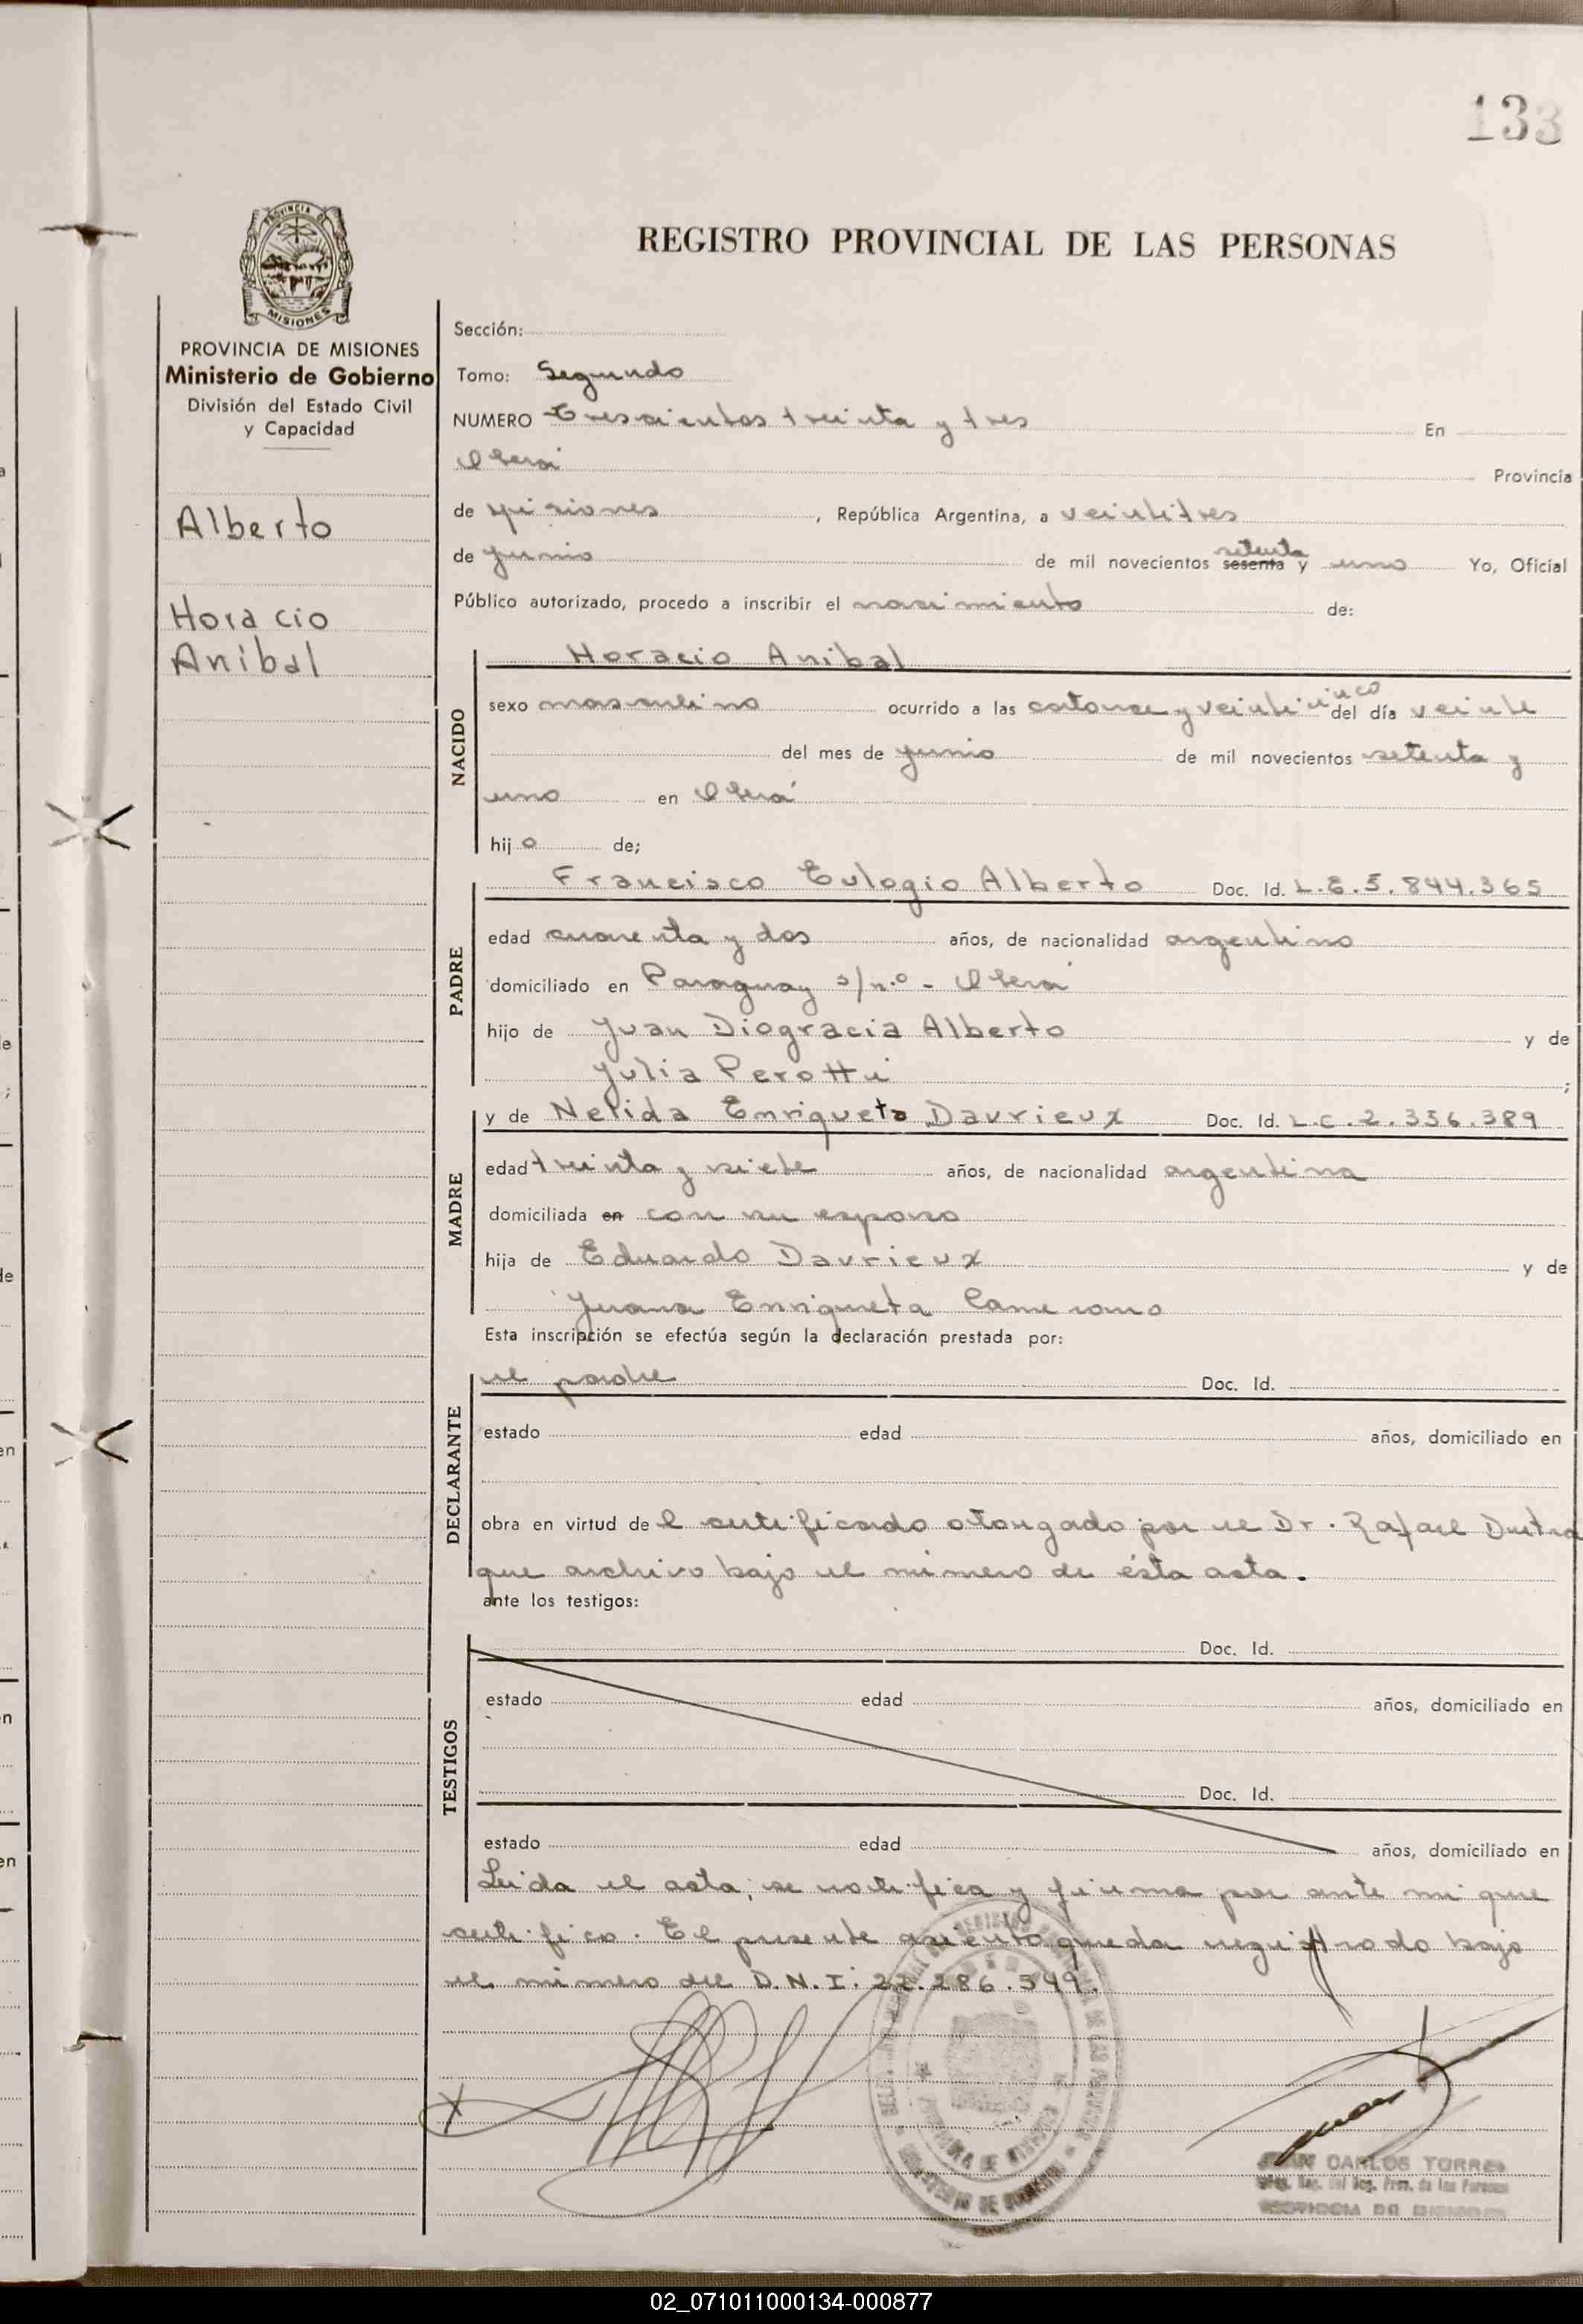 133
PROVINCIA DE
MISIONES
REGISTRO PROVINCIAL DE LAS PERSONAS
PROVINCIA DE MISIONES
Ministerio de Gobierno
División del Estado Civil
y Capacidad
Alberto
Horacio
Anibal
Sección:
Tomo: Segundo
NUMERO Trescientos treinta y tres En
Oberá Provincia
de Misiones, República Argentina, a veintitres
de junio de mil novecientos sesenta setenta y uno Yo, Oficial
Público autorizado, procedo a inscribir el nacimiento de:
NACIDO
Horacio Anibal
sexo masculino ocurrido a las catorce y veinticinco del día veinte
del mes de junio de mil novecientos setenta y
uno en Oberá
hijo de;
PADRE
Francisco Eulogio Alberto Doc. Id. L.E. 5.844.365
edad cuarenta y dos años, de nacionalidad argentino
domiciliado en Paraguay s/n.o - Oberá
hijo de Juan Diogracia Alberto y de
Julia Perotti ;
MADRE
y de Nelida Enriqueta Davrieux Doc. Id. L.C. 2.356.389
edad treinta y siete años, de nacionalidad argentina
domiciliada en con su esposo
hija de Eduardo Davrieux y de
Juana Enriqueta
Esta inscripción se efectúa según la declaración prestada por:
DECLARANTE
el padre Doc. Id.
estado edad años, domiciliado en
obra en virtud del certificado otorgado por el Dr. Rafael Dutra
que archivo bajo el número de ésta acta.
ante los testigos:
TESTIGOS
Doc. Id.
estado edad años, domiciliado en
Doc. Id.
estado edad años, domiciliado en
Leida el acta, se notifica y firma por ante mi que
certifico. El presente asiento queda registrado bajo
el número del D.N.I. 22.286.549.
JUAN CARLOS TORRES
02_071011000134-000877